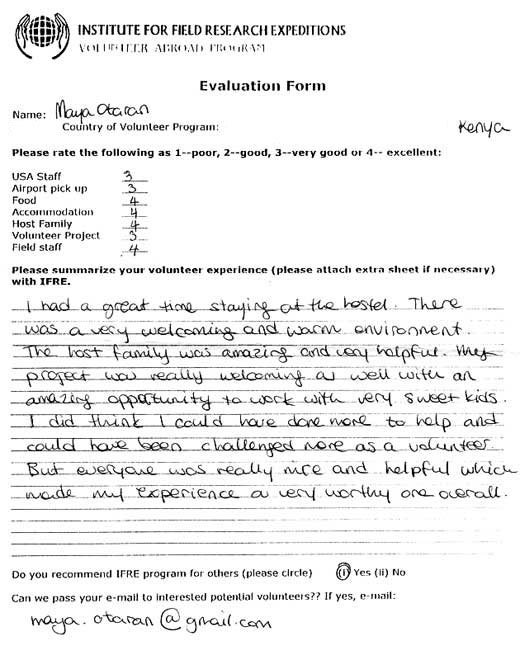 INSTITUTE FOR FIELD RESEARCH EXPEDITIONS
VOLUNTEER ABROAD PROGRAM
Evaluation Form
Name: Maya Otaran
Country of Volunteer Program: Kenya
Please rate the following as 1--poor, 2--good, 3--very good or 4-- excellent:
USA Staff 3
Airport pick up 3
Food 4
Accommodation 4
Host Family 4
Volunteer Project 3
Field staff 4
Please summarize your volunteer experience (please attach extra sheet if necessary)
with IFRE.
I had a great time staying at the hostel. There
was a very welcoming and warm environment.
The host family was amazing and very helpful. My
project was really welcoming as well with an
amazing opportunity to work with very sweet kids.
I did think I could have done more to help and
could have been challenged more as a volunteer.
But everyone was really nice and helpful which
made my experience a very worthy one overall.
Do you recommend IFRE program for others (please circle) (i) Yes (ii) No
Can we pass your e-mail to interested potential volunteers?? If yes, e-mail:
maya.otaran@gmail.com